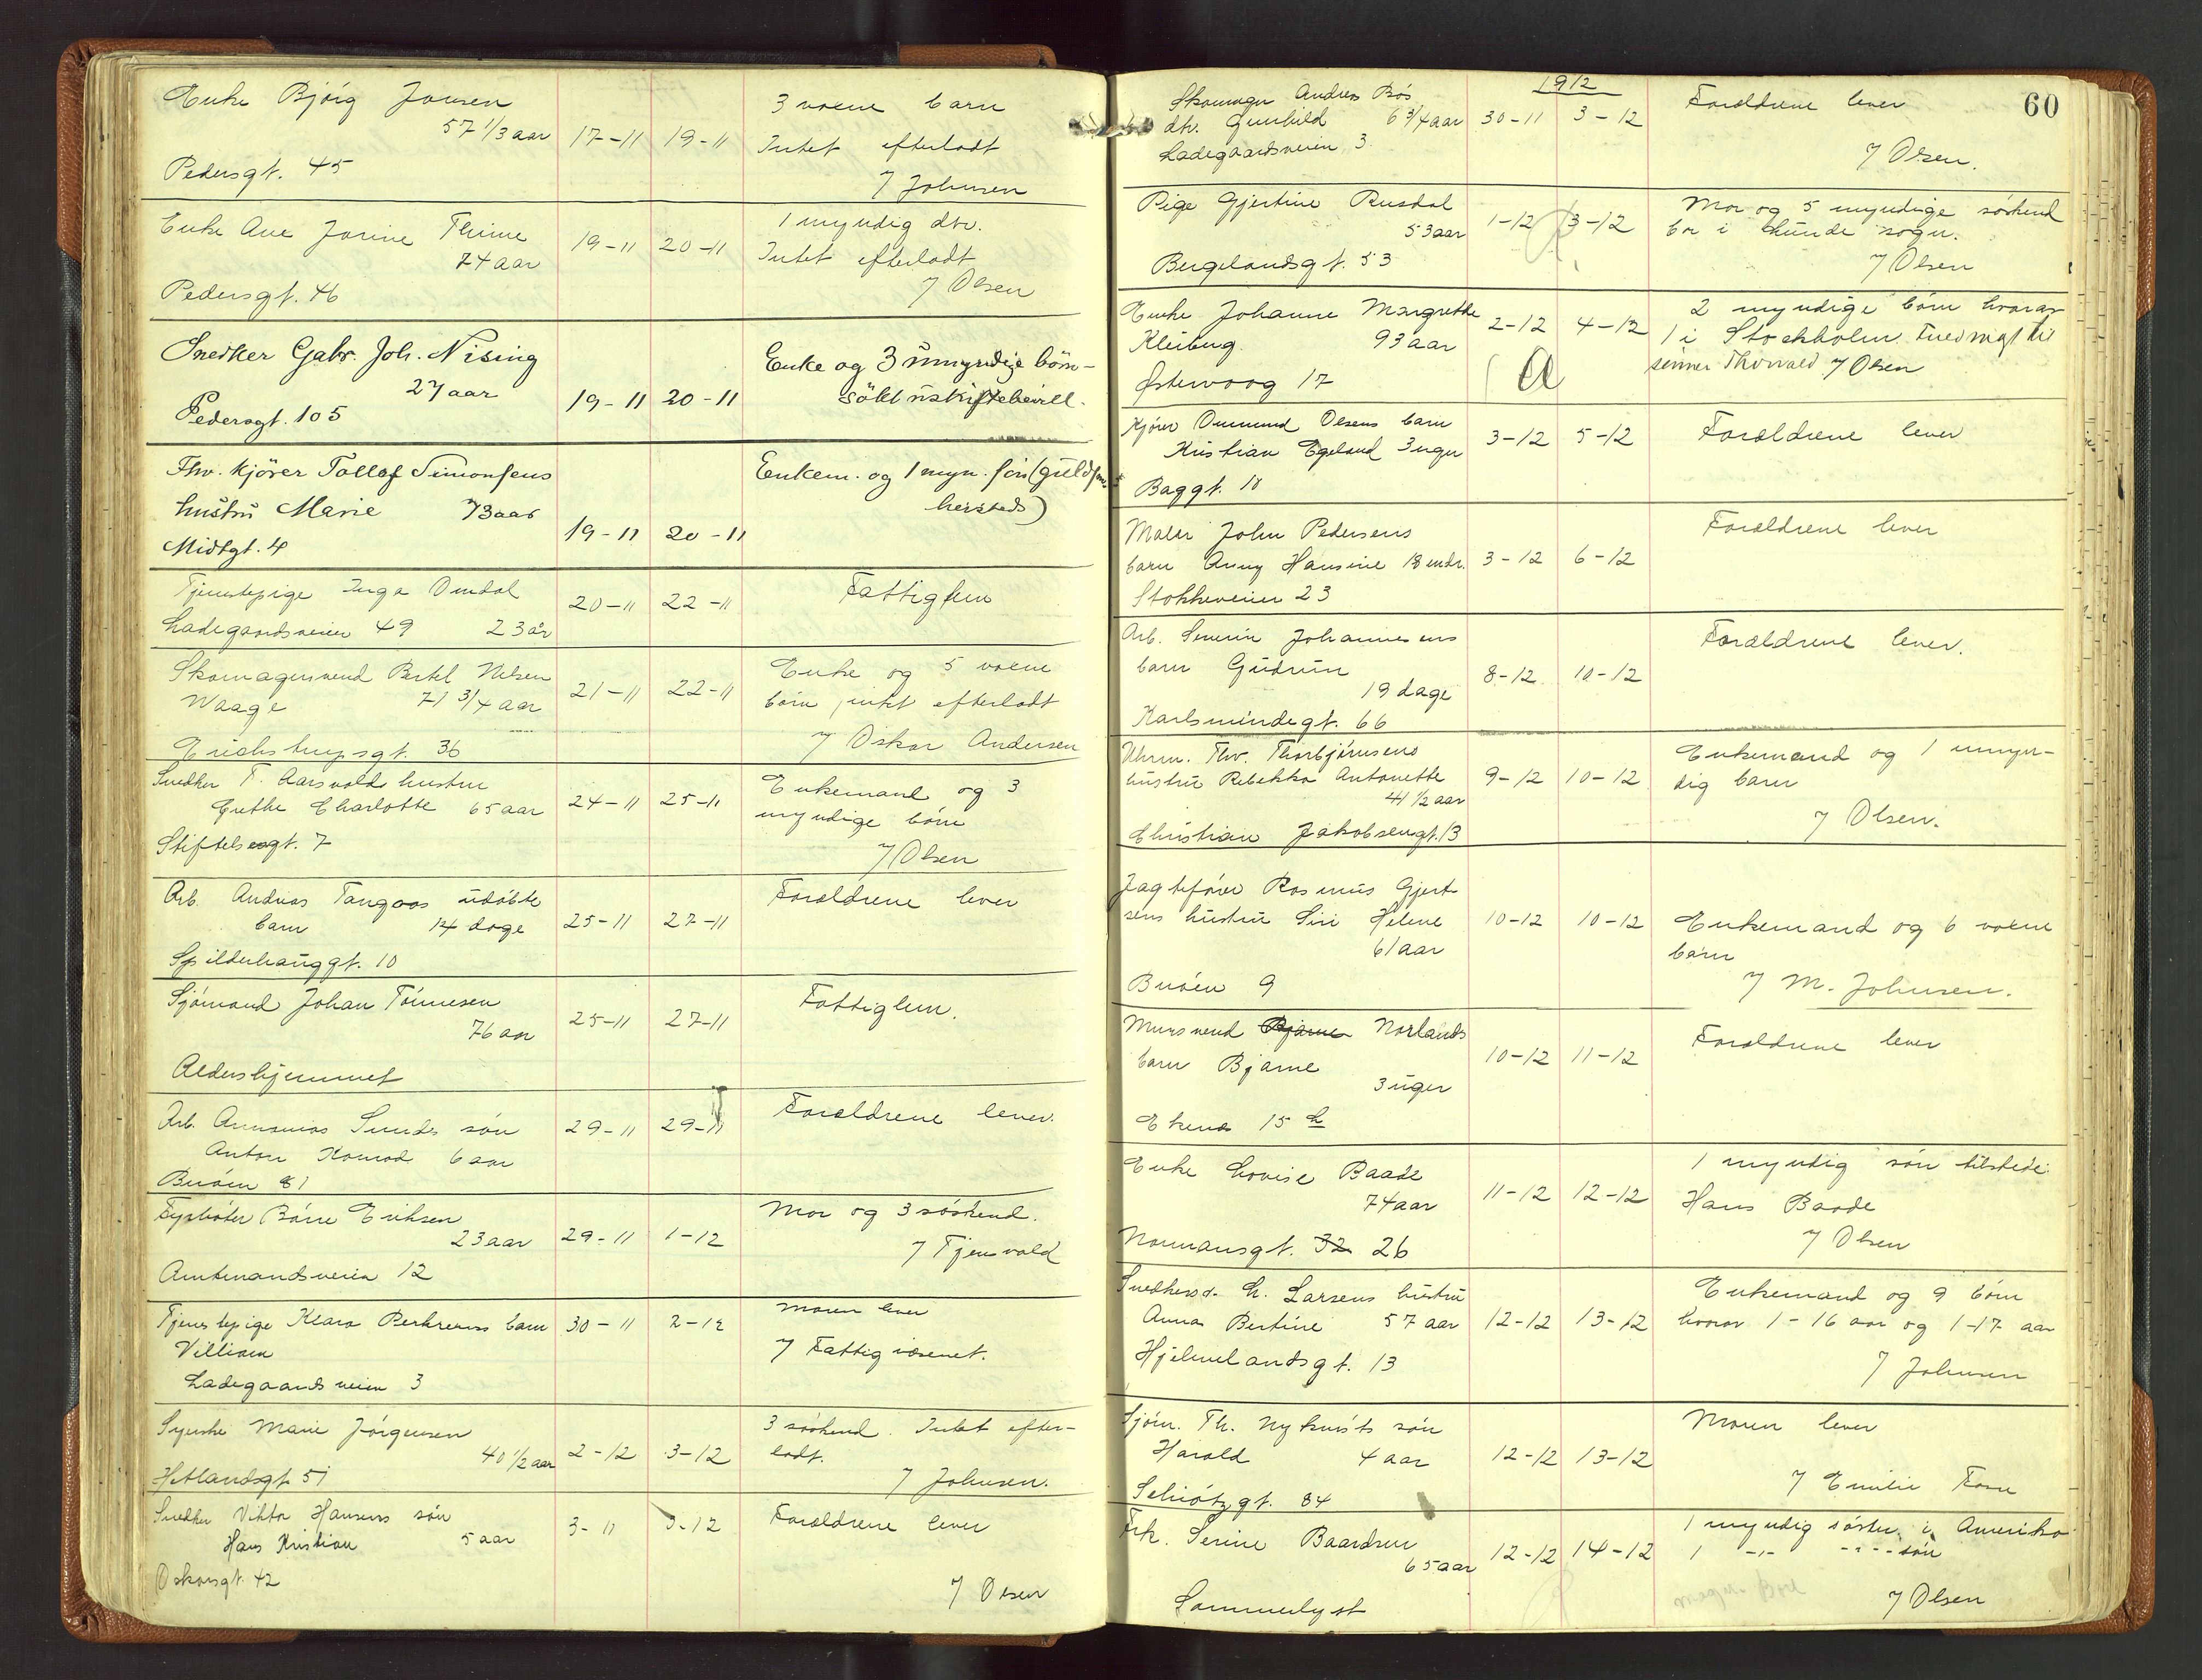 Enke Bjørg Jonsen
57 1/3 aar 17-11 19-11
Pedersgt. 45
3 voxne barn
Intet efterladt
7 Johnsen
Enke Ane Jorine Thime
74 aar 19-11 20-11
Pedersgt. 46
1 myndig dtr.
Intet efterladt
7 Olsen
Snedker Gabr. Joh. Nising
27 aar 19-11 20-11
Pedersgt. 105
Enke og 3 ümyndige börn-
sökt üskiftebevill.
Fhv. kjörer Tollof Simonsens
hüstrü Marie 73 aar 19-11 20-11
Midtgt. 4
Enkem. og 1 myn.
hersteds)
Tjenestepige Inga Omdal 20-11 22-11
Ladegaardsveien 49 23 år
Fattiglem
Skomagersvend Bertel Nilsen
Waage 71 3/4 aar 21-11 22-11
Erichstrupsgt. 36
Enke og 5 voxne
börn, intet efterladt
7 Oskar Andersen
Snedker T. Aarsvolds hustru
Grethe Charlotte 65 aar 24-11 25-11
Stiftelsesgt. 7
Enkemand og 3
myndige børn
7 Olsen
Arb. Andreas Tangaas udöbte
barn 14 dage 25-11 27-11
Spilderhauggt. 10
Forældrene lever
Sjømand Johan Tönnesen
76 aar 25-11 27-11
Aldershjemmet
Fattiglem.
Arb. Annanias Sundes søn
Anton Konrad 6 aar 29-11 29-11
Buøen 81
Forældrene lever.
Børre Eriksen
23 aar 29-11 1-12
Amtmandsveien 12
Mor og 3 söskend.
7 Tjensvold
Tjenestepige Klara barn 30-11 2-12
Villiam
Ladegaardsveien 3
Moren lever
7 Fattigvæsenet.
Syerske Marie Jørgensen
40 1/2 aar 2-12 3-12
Hetlandsgt. 51
3 söskend. Intet efter-
ladt.
7 Johnsen.
Snedker Viktor Hansens søn
Hans Kristian 5 aar 3-11 3-12
Oskarsgt. 42
Forældrene lever
7 Olsen
1912
60
Skomager Andreas Bös
dtr. Gunhild 6 3/4 aar 30-11 3-12
Ladegaardsveien 3.
Forældrene lever
7 Olsen.
Pige Gjertine Rusdal
53 aar 1-12 3-12
Bergelandsgt. 53
Mor og 5 myndige söskend
bor i Lunde sogn.
7 Olsen
Enke Johanne Margrethe
Kleiberg 93 aar 2-12 4-12
Østervaag 17
2 myndige børn hvorav
1 i Stockholm. Fuldmagt til
sønnen Thorvald 7 Olsen
Kjører Ommund Olsens barn
Kristian Egeland 3 uger 3-12 5-12
Baggt. 11
Forældrene lever
Maler John Pedersens
barn Anny Hansine 18 mdr. 3-12 6-12
Stokkeveien 23
Forældrene lever
Arb. Severin Johannesens
barn Gudrun
19 dage 8-12 10-12
Karlsmindegt. 66
Forældrene lever.
Uhrm. Thv. Thorbjørnsens
hüstrü Rebekka Antonette
41 1/2 aar 9-12 10-12
Christian Jakobsengt. 13
Enkemand og 1 umyn-
dig barn
7 Olsen.
Jagtefører Rasmus Gjert-
sens hüstrü Siri Helene
61 aar 10-12 10-12
Buöen 9
Enkemand og 6 voxne
börn
7 M. Johnsen.
Mursvend Bjarne Norlands
barn Bjarne
3 uger 10-12 11-12
Ekenæs 15 h
Forældrene lever
Enke Lovise Baade
74 aar 11-12 12-12
Normansgt. 32 26
1 myndig sön tilstede
Hans Baade
7 Olsen
L. Larsens hüstrü
Anna Bertine 57 aar 12-12 13-12
Hjelmelandsgt. 13
Enkemand og 9 börn
hvorav 1-16 aar og 1-17 aar
7 Johnsen
Sjöm. Th. Nykvists sön
Harald 4 aar 12-12 13-12
Schiötzgt. 84
Moren lever
7 Emilie
Frk. Serine Baardsen
65 aar 12-12 14-12
Sommerlyst
1 myndig söster i Amerika
1 -"- -"- sön
7 Olsen